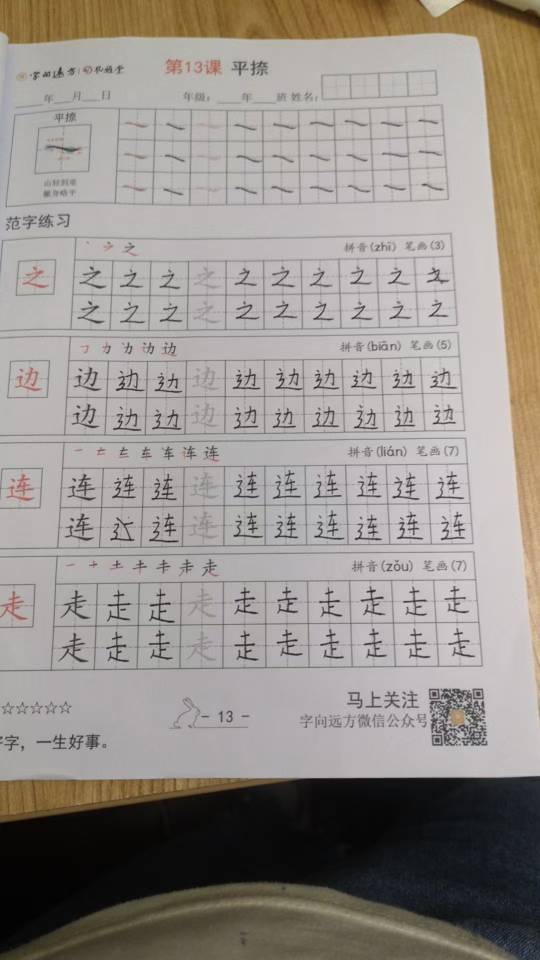 字向远方
第13课 平捺
年 月 日 年级： 年 班 姓名：
平捺
范字练习
之 拼音(zhī) 笔画(3)
之 之 之 之 之 之 之 之 之 之
之 之 之 之 之 之 之 之 之 之
边 边 拼音(biān) 笔画(5)
边 边 边 边 边 边 边 边 边 边
边 边 边 边 边 边 边 边 边 边
连 连 拼音(lián) 笔画(7)
连 连 连 连 连 连 连 连 连 连
连 连 连 连 连 连 连 连 连
走 走 拼音(zǒu) 笔画(7)
走 走 走 走 走 走 走 走 走 走
走 走 走 走 走 走 走 走 走 走
☆☆☆☆☆☆
- 13 -
马上关注
字向远方微信公众号
字，一生好事。